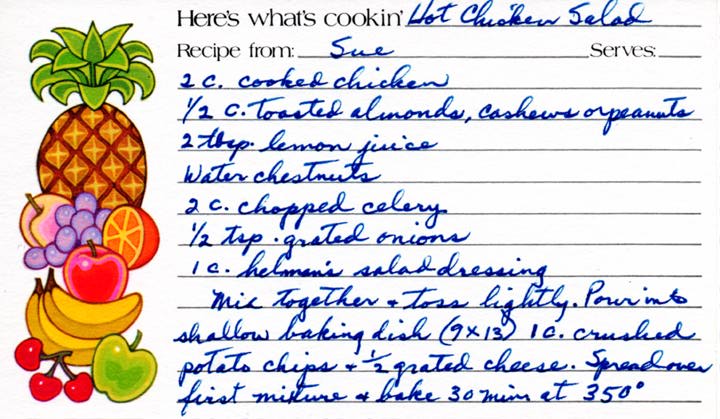 Here's what's cookin' Hot Chicken Salad
Recipe from: Sue Serves:
2 c. cooked chicken
1/2 c. toasted almonds, cashews or peanuts
2 tbsp. lemon juice
Water chestnuts
2 c. chopped celery
1/2 tsp. grated onions
1 c. helman's salad dressing
Mix together + toss lightly. Pour into
shallow baking dish (9x13) 1 c. crushed
potato chips + 1/2 grated cheese. Spread over
first mixture & bake 30 mins at 350°